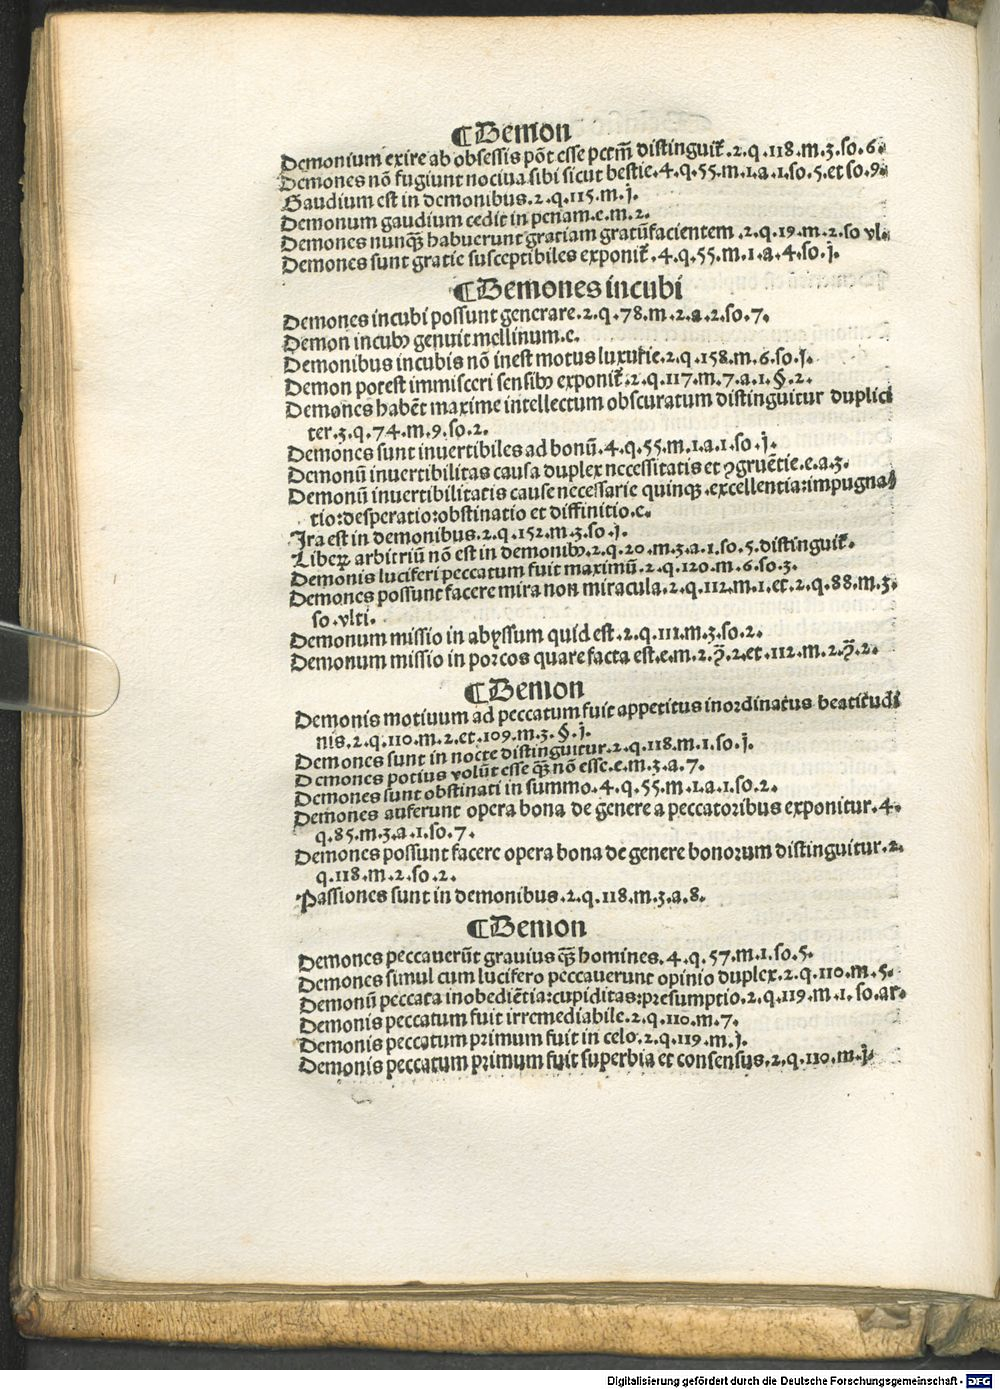 ¶Demon
Demonium exire ab obsessis põt esse distinguit̃.2.q.118.m.3.so.6.
Demones nõ fugiunt nociua sibi sicut bestie.4.q.55.m.1.a.1.so.5.et so.9.
Gaudium est in demonibus.2.q.115.m.j.
Demonum gaudium cedit in penam.e.m.2.
Demones nunq̃ habuerunt gratiam gratũfacientem.2.q.19.m.2.so vl.
Demones sunt gratie susceptibiles exponit̃.4.q.55.m.1.a.4.so.j.
¶Demones incubi
Demones incubi possunt generare.2.q.78.m.2.a.2.so.7.
Demon incubꝰ genuit mellinum.e.
Demonibus incubis nõ inest motus luxurie.2.q.158.m.6.so.j.
Demon potest immisceri sensibꝰ exponit̃.2.q.117.m.7.a.1.§.2.
Demones habẽt maxime intellectum obscuratum distinguitur duplici
ter.3.q.74.m.9.so.2.
Demones sunt inuertibiles ad bonũ.4.q.55.m.1.a.1.so.j.
Demonũ inuertibilitas causa duplex necessitatis et ꝯgruẽtie.e.a.3.
Demonũ inuertibilitatis cause necessarie quinqꝫ.excellentia:impugna
tio:desperatio:obstinatio et diffinitio.e.
Ira est in demonibus.2.q.152.m.3.so.j.
Liberꝝ arbitriũ nõ est in demonibꝰ.2.q.20.m.3.a.1.so.5.distinguit̃.
Demonis luciferi peccatum fuit maximũ.2.q.120.m.6.so.3.
Demones possunt facere mira non miracula.2.q.112.m.1.et.2.q.88.m.3.
so.vlti.
Demonum missio in abyssum quid est.2.q.111.m.3.so.2.
Demonum missio in porcos quare facta est.e.m.2.ꝟ.2.et.112.m.2.ꝟ.2.
¶Demon
Demonis motiuum ad peccatum fuit appetitus inordinatus beatitudi
nis.2.q.110.m.2.et.109.m.3.§.j.
Demones sunt in nocte distinguitur.2.q.118.m.1.so.j.
Demones potius volũt esse q̃ nõ esse.e.m.3.a.7.
Demones sunt obstinati in summo.4.q.55.m.1.a.1.so.2.
Demones auferunt opera bona de genere a peccatoribus exponitur.4.
q.85.m.3.a.1.so.7.
Demones possunt facere opera bona de genere bonorum distinguitur.2.
q.118.m.2.so.2.
Passiones sunt in demonibus.2.q.118.m.3.a.8.
¶Demon
Demones peccauerũt grauius q̃ homines.4.q.57.m.1.so.5.
Demones simul cum lucifero peccauerunt opinio duplex.2.q.110.m.5.
Demonũ peccata inobediẽtia:cupiditas:presumptio.2.q.119.m.1.so.ar.
Demonis peccatum fuit irremediabile.2.q.110.m.7.
Demonis peccatum primum fuit in celo.2.q.119.m.j.
Demonis peccatum primum fuit superbia et consensus.2.q.110.m.j.
Digitalisierung gefördert durch die Deutsche Forschungsgemeinschaft - DFG